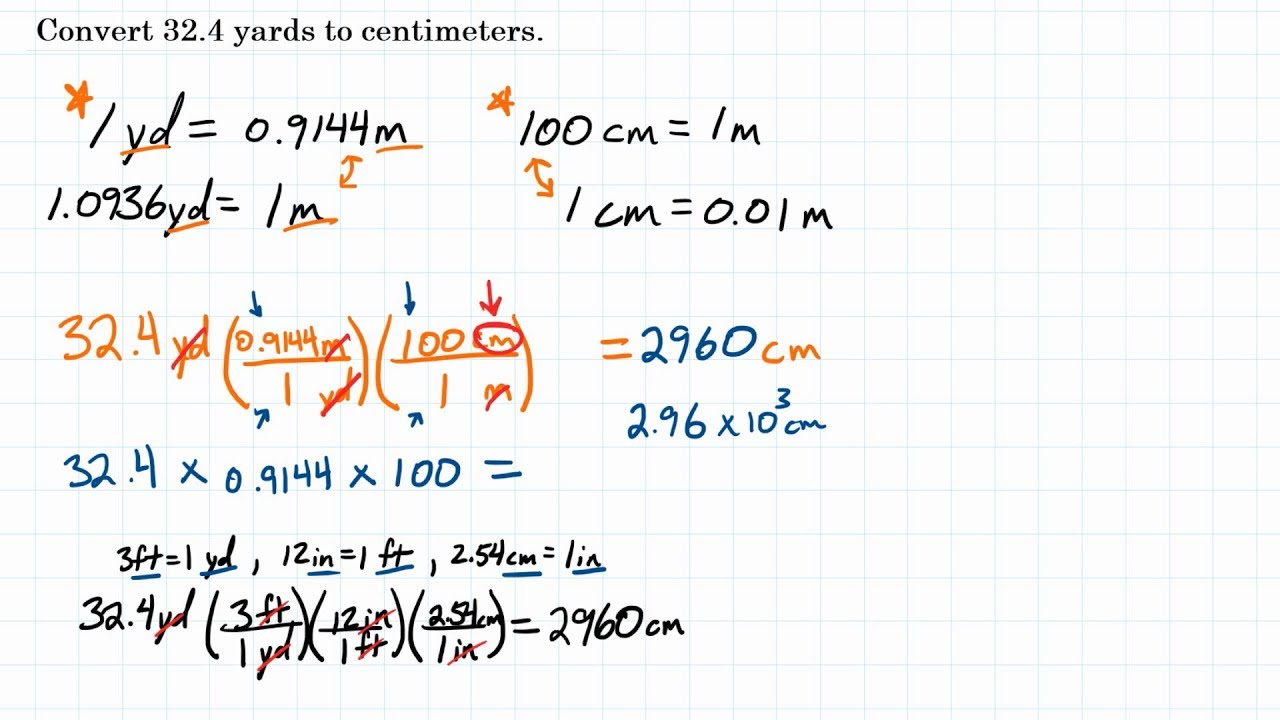 Convert 32.4 yards to centimeters.
* 1 yd = 0.9144 m
* 100 cm = 1 m
1.0936 yd = 1 m
1 cm = 0.01 m
32.4 yd (0.9144 m / 1 yd) (100 cm / 1 m) = 2960 cm
2.96 x 10³ cm
32.4 x 0.9144 x 100 =
3 ft = 1 yd, 12 in = 1 ft, 2.54 cm = 1 in
32.4 yd (3 ft / 1 yd) (12 in / 1 ft) (2.54 cm / 1 in) = 2960 cm